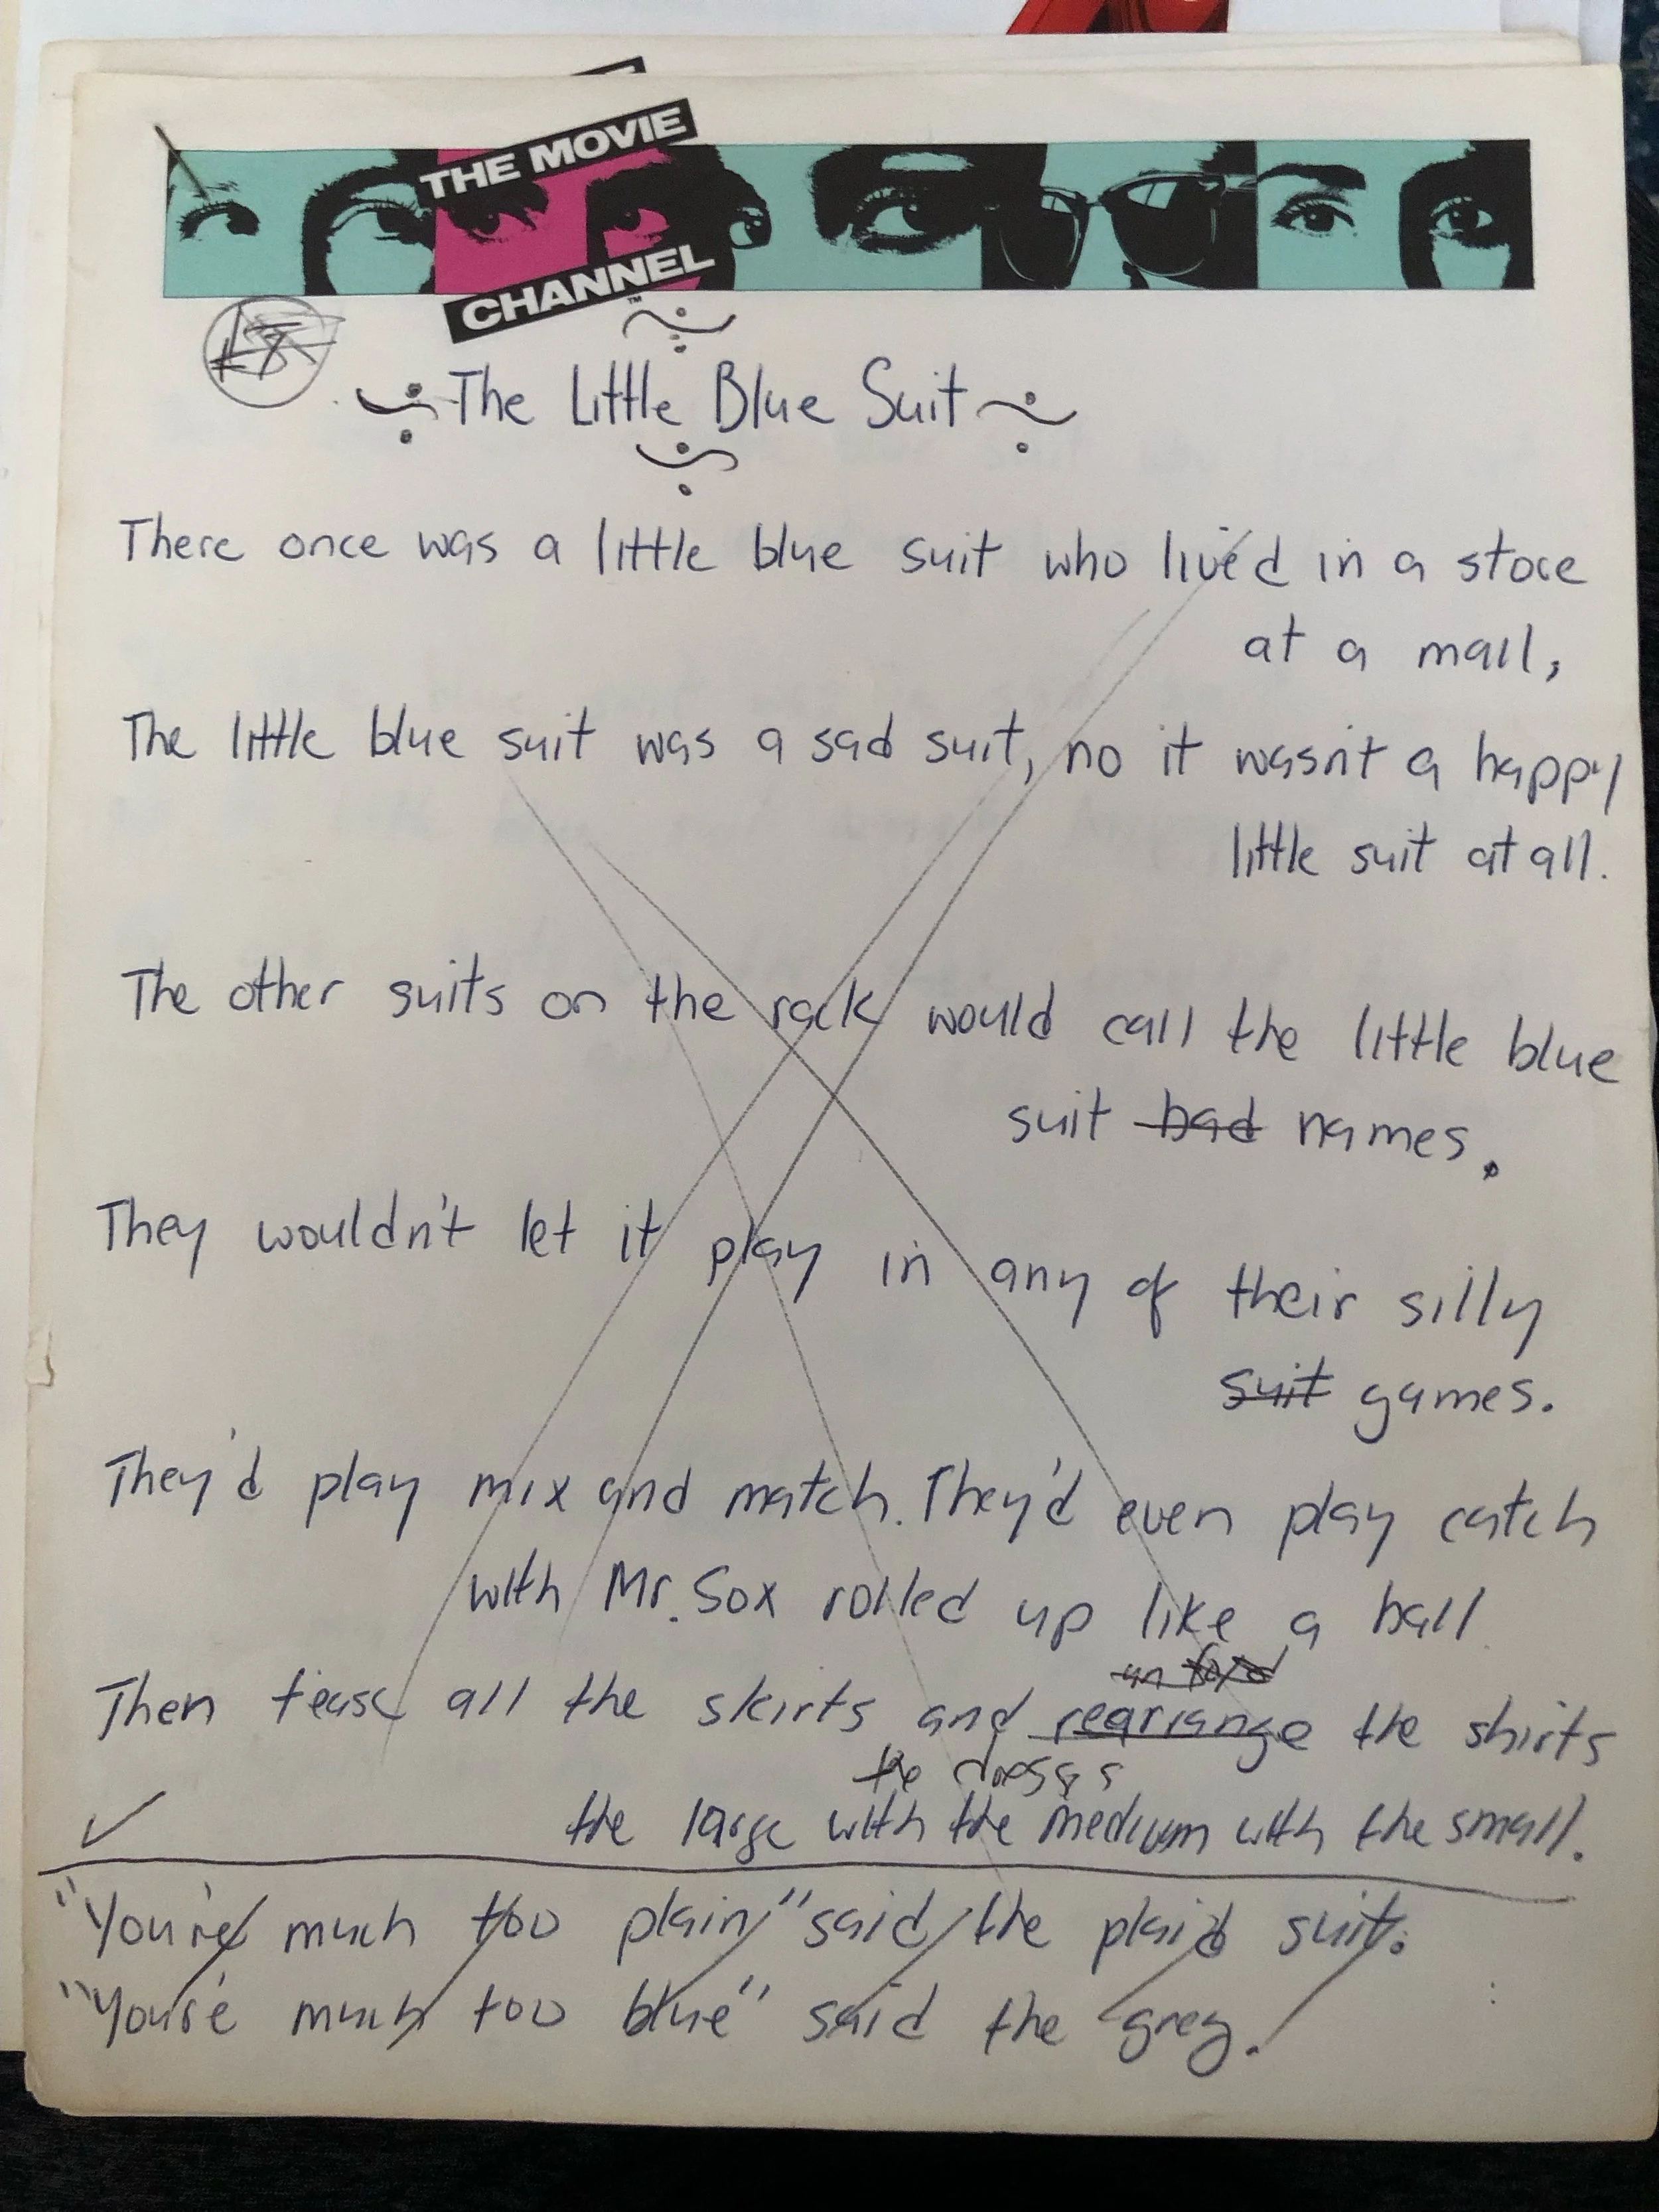 THE MOVIE
CHANNEL
™
The Little Blue Suit
There once was a little blue suit who lived in a store
at a mall,
The little blue suit was a sad suit, no it wasn't a happy
little suit at all.
The other suits on the rack would call the little blue
suit bad names.
They wouldn't let it play in any of their silly
suit games.
They'd play mix and match. They'd even play catch
with Mr. Sox rolled up like a ball
un fold
Then tease all the skirts and rearrange the shirts
the dresses
the large with the medium with the small.
"You're much too plain" said the plaid suit.
"You're much too blue" said the grey.